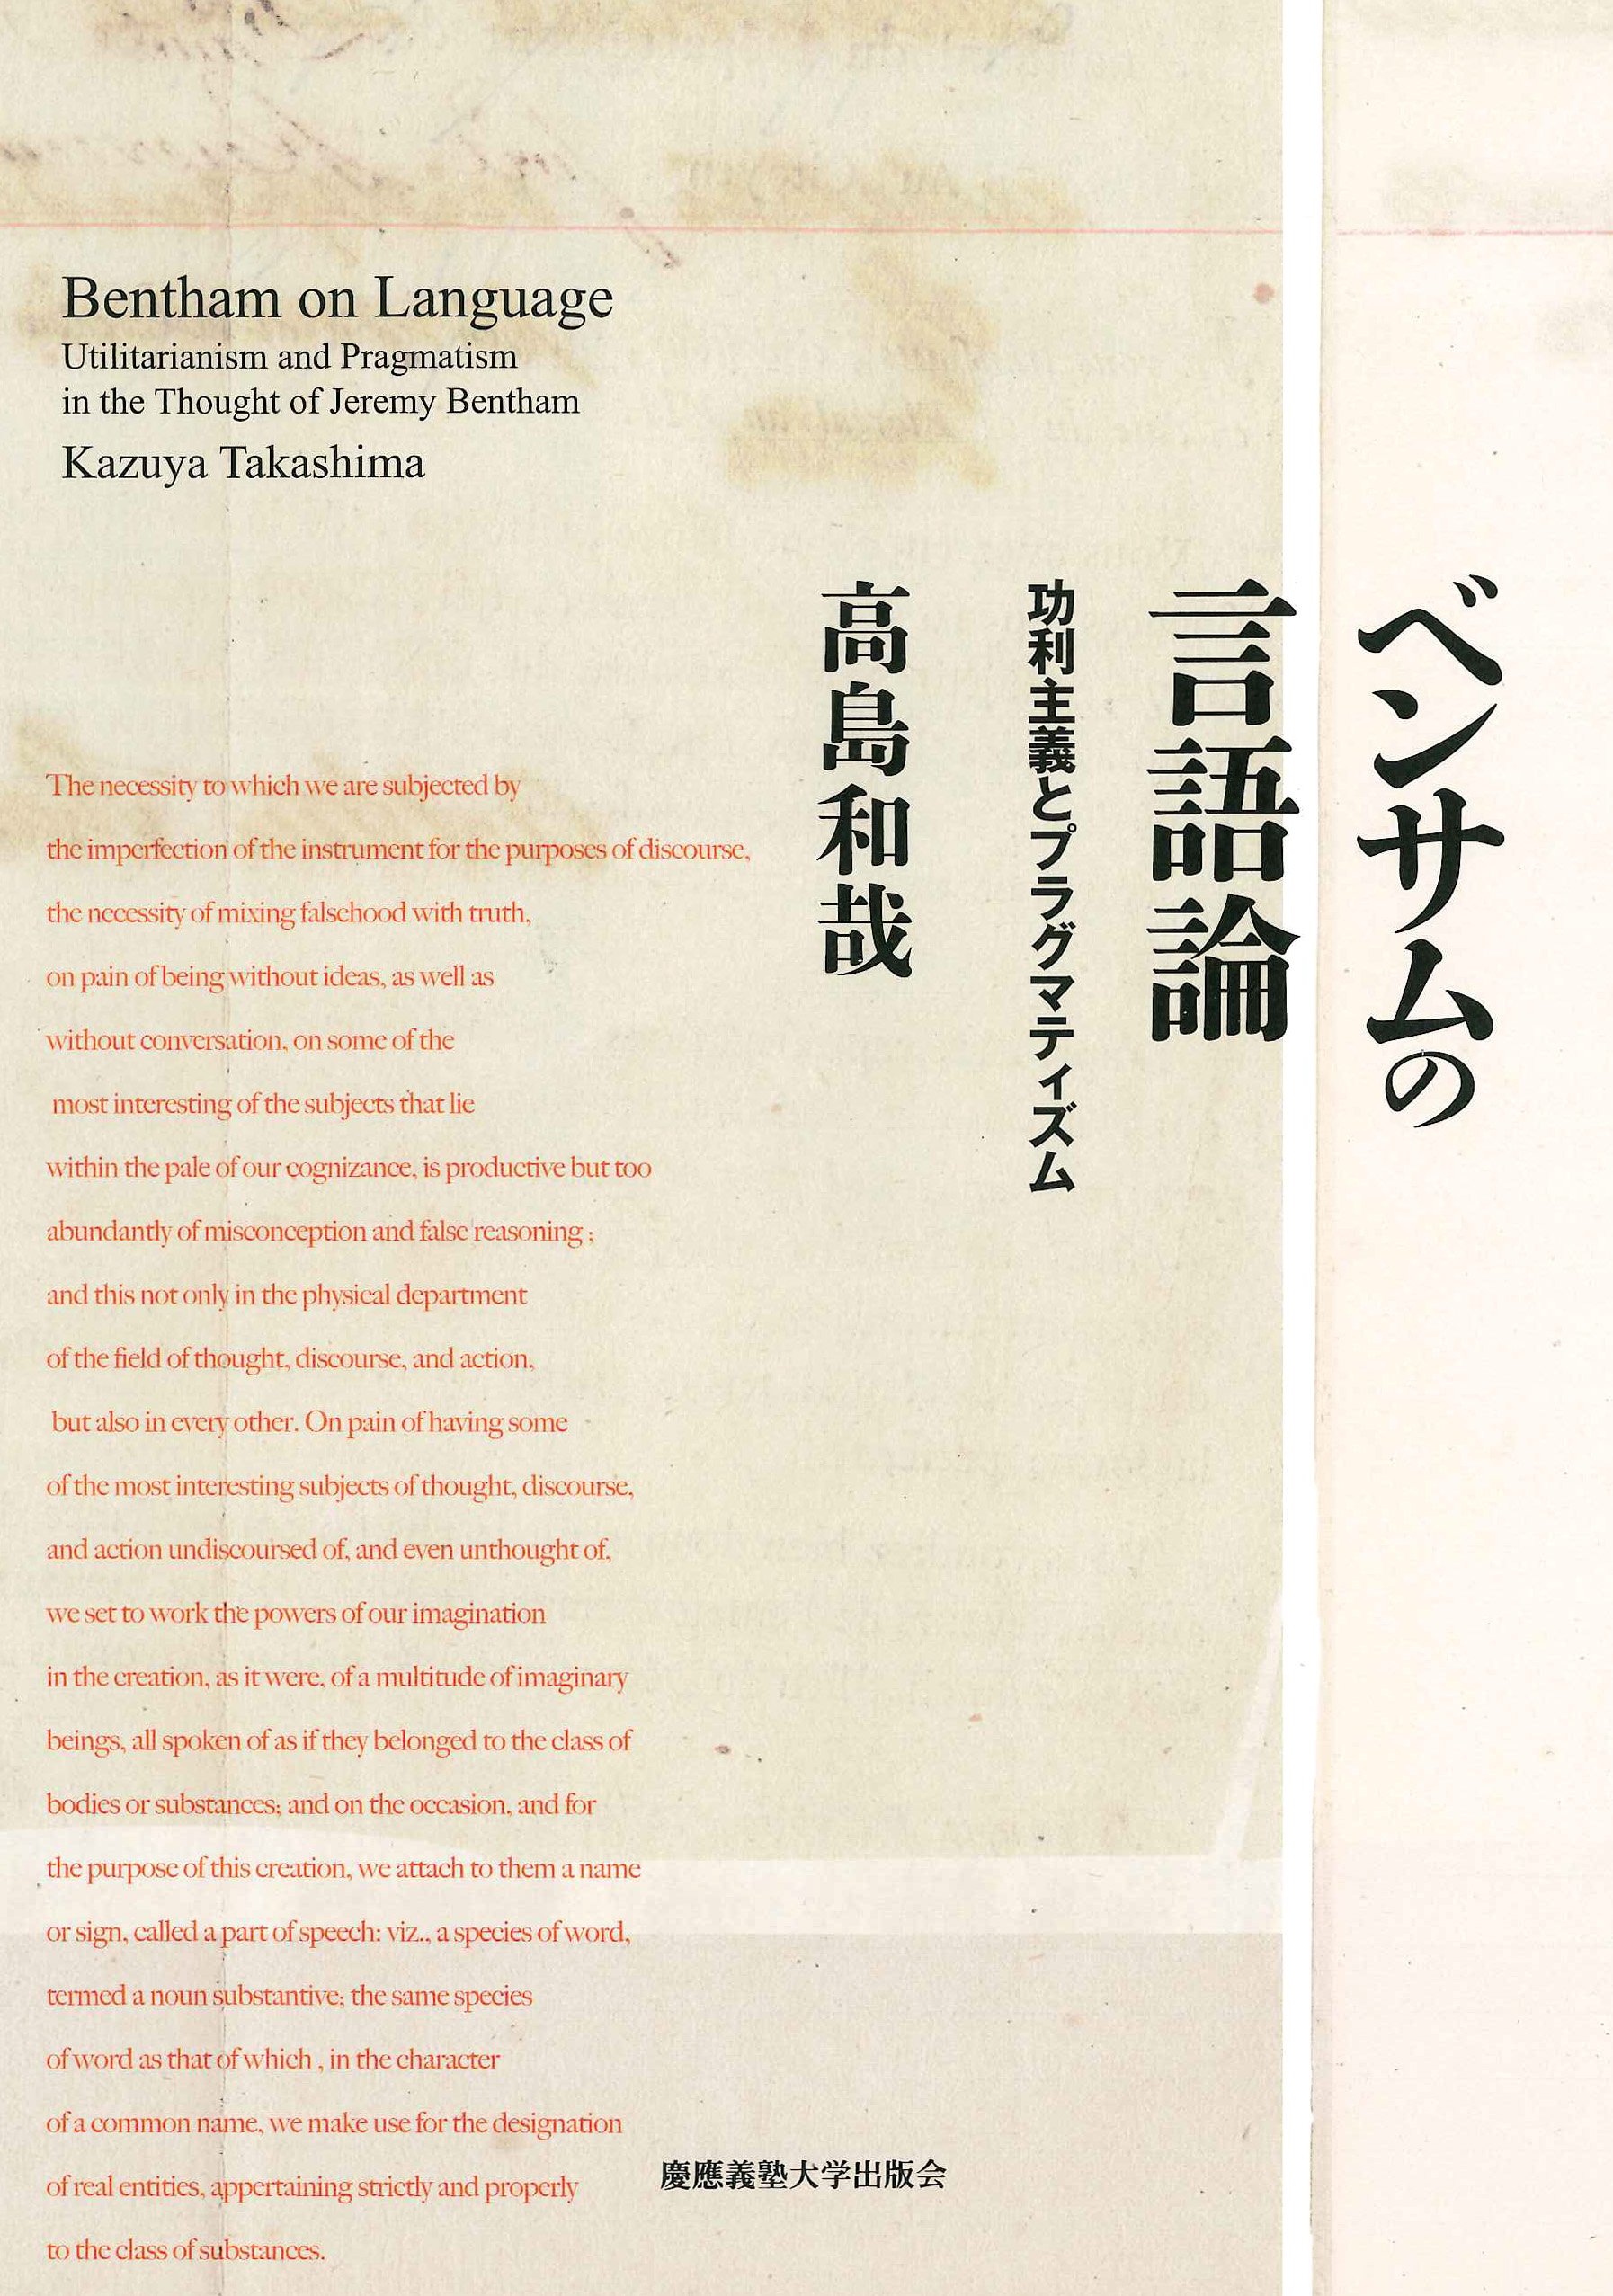 Bentham on Language
Utilitarianism and Pragmatism
in the Thought of Jeremy Bentham
Kazuya Takashima
ベンサムの
言語論
功利主義とプラグマティズム
高島和哉
The necessity to which we are subjected by
the imperfection of the instrument for the purposes of discourse,
the necessity of mixing falsehood with truth,
on pain of being without ideas, as well as
without conversation, on some of the
most interesting of the subjects that lie
within the pale of our cognizance, is productive but too
abundantly of misconception and false reasoning ;
and this not only in the physical department
of the field of thought, discourse, and action,
but also in every other. On pain of having some
of the most interesting subjects of thought, discourse,
and action undiscoursed of, and even unthought of,
we set to work the powers of our imagination
in the creation, as it were, of a multitude of imaginary
beings, all spoken of as if they belonged to the class of
bodies or substances; and on the occasion, and for
the purpose of this creation, we attach to them a name
or sign, called a part of speech: viz., a species of word,
termed a noun substantive; the same species
of word as that of which , in the character
of a common name, we make use for the designation
of real entities, appertaining strictly and properly
to the class of substances.
慶應義塾大学出版会